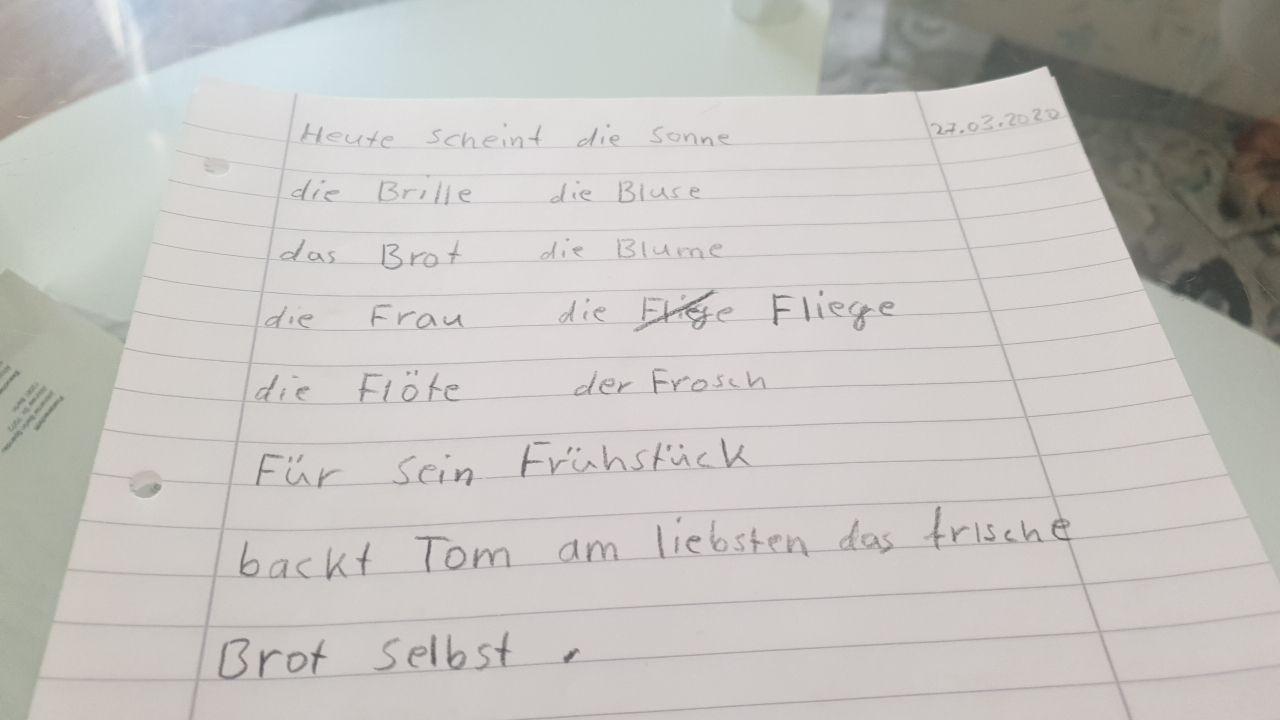 Heute scheint die Sonne 27.03.2020
die Brille die Bluse
das Brot die Blume
die Frau die Fliege Fliege
die Flöte der Frosch
Für sein Frühstück
backt Tom am liebsten das frische
Brot selbst.